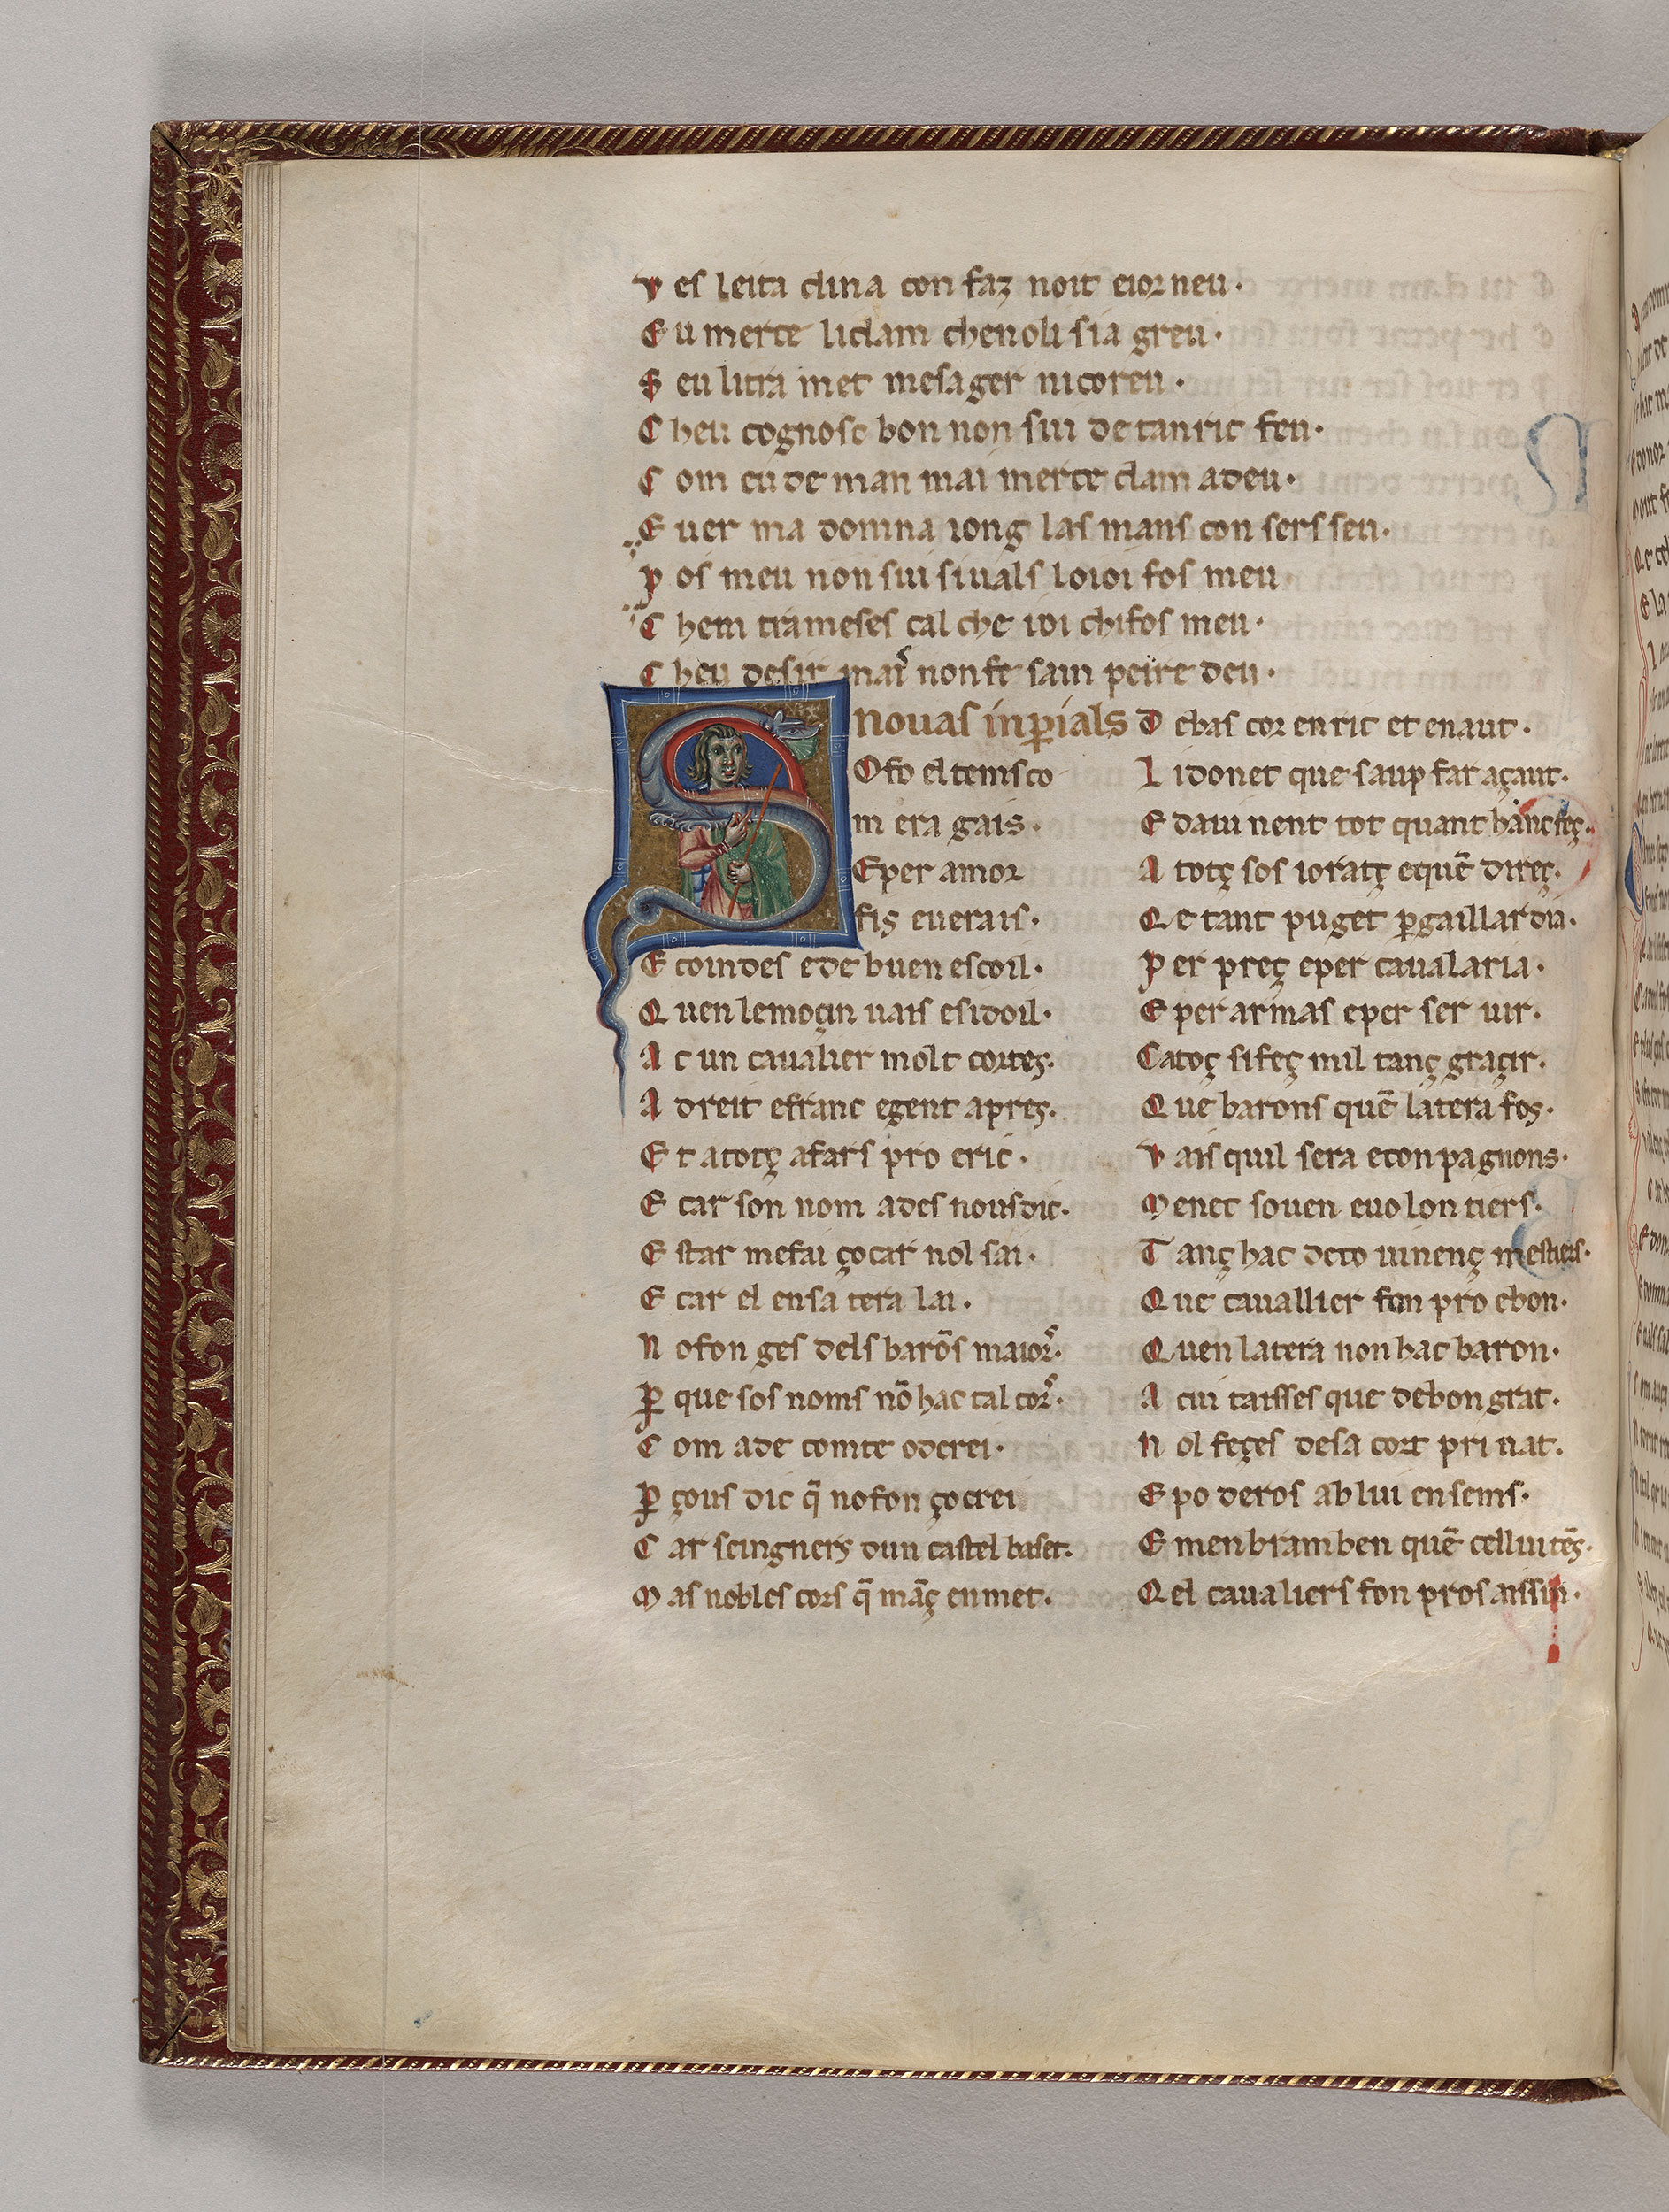 V es leita clina con faz noit eiorneu.
E u merce li clam che noli sia greu.
S eu litra met mesager ni coreu.
C heu cognosc bon non sui de tan ric feu.
C om eu deman mai merce clam a deu.
E uer ma domna iong las mans con sers seu.
P os meu non sui siuals loioi fos meu
C hem trameses cal che ioi chi fos meu.
C heu desir mais non fe sain peire deu.
nouas inpials
Ofo el temsco
m era gais.
E per amor
fis euerais.
E coindes ede buen escoil.
Q uen lemoçin uais esidoil.
A c un caualier molt cortes.
A dreit efranc egent apres.
E t atotç afars pro eric.
E car son nom ades nousdic.
E star mefai ço car nol sai.
E car el ensa tera lai.
N ofon ges dels barōs maiors.
ꝑ que sos noms nō hac tal cors.
C om ade comte oderei.
ꝑ çous dic q̄ nofon ço crei
C ar seingners dun castel baset.
M as nobles cors q̄ māç enmet.
D ebas cor en ric et enaut.
L i donet que saup far açaut.
E daui nent tot quant hanc feç.
A totç sos ioratç equē direç.
Q e tant puget ꝑgaillardia.
P er preç eper caualaria.
E per armas eper ser uir.
Catoç sifeç mil tanç graçir.
Q ue barons quē latera fos.
V ais quil sera econpagnons.
M enet souen euolontiers.
T anç hac deco uinenç mestiers.
Q ue cauallier fon pro ebon.
Q uen latera non hac baron.
A cui taisses que debon grat.
N ol feçes desa cort pri nat.
E po deros ab lui ensems.
E menbram ben quē celluitēs.
Q el caualiers fon pros aissin.